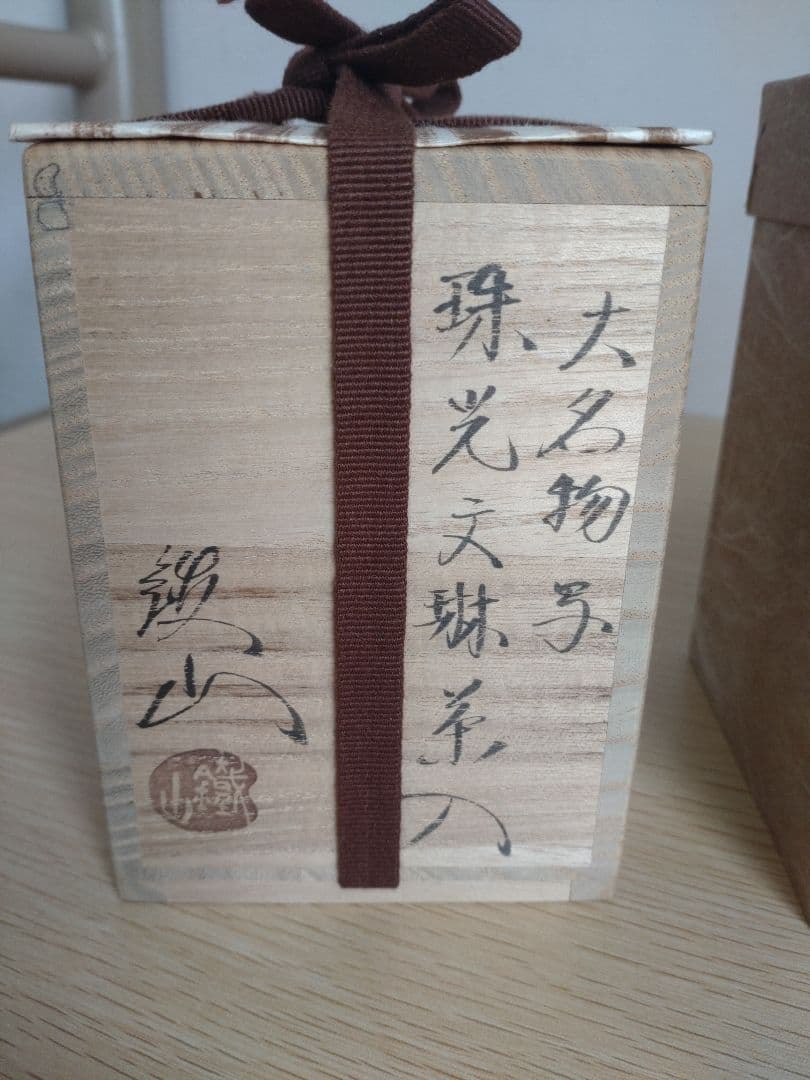 大名物写
珠光文琳茶入
鐵山
鐵山